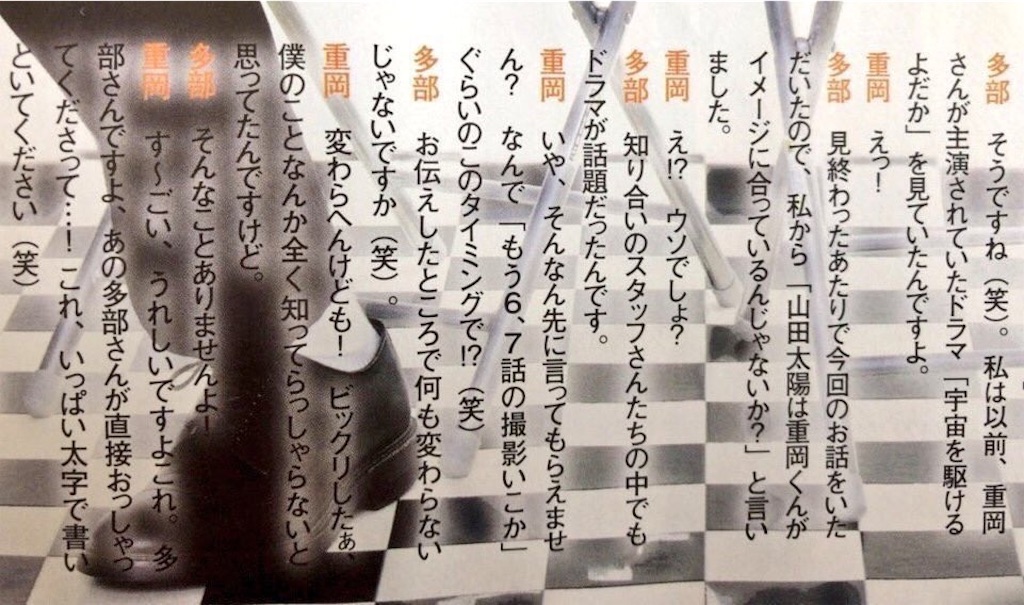 多部　そうですね（笑）。私は以前、重岡
さんが主演されていたドラマ「宇宙を駆ける
よだか」を見ていたんですよ。
重岡　えっ！
多部　見終わったあたりで今回のお話をいた
だいたので、私から「山田太陽は重岡くんが
イメージに合っているんじゃないか？」と言い
ました。
重岡　え!?　ウソでしょ？
多部　知り合いのスタッフさんたちの中でも
ドラマが話題だったんです。
重岡　いや、そんなん先に言ってもらえませ
ん？　なんで「もう6、7話の撮影いこか」
ぐらいのこのタイミングで!?（笑）
多部　お伝えしたところで何も変わらない
じゃないですか（笑）。
重岡　変わらへんけども！　ビックリしたぁ、
僕のことなんか全く知ってらっしゃらないと
思ってたんですけど。
多部　そんなことありませんよー
重岡　す〜ごい、うれしいですよこれ。多
部さんですよ、あの多部さんが直接おっしゃっ
てくださって…！これ、いっぱい太字で書い
といてください（笑）